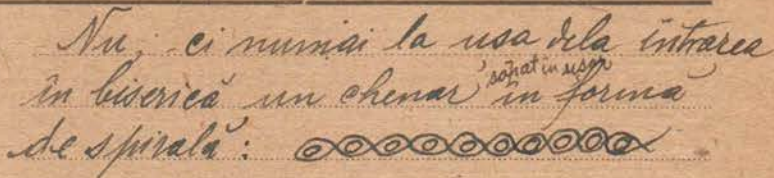 Nu, ci numai la usa dela intrarea
în biserică un chenar săpat in usor în formă
de spirală: